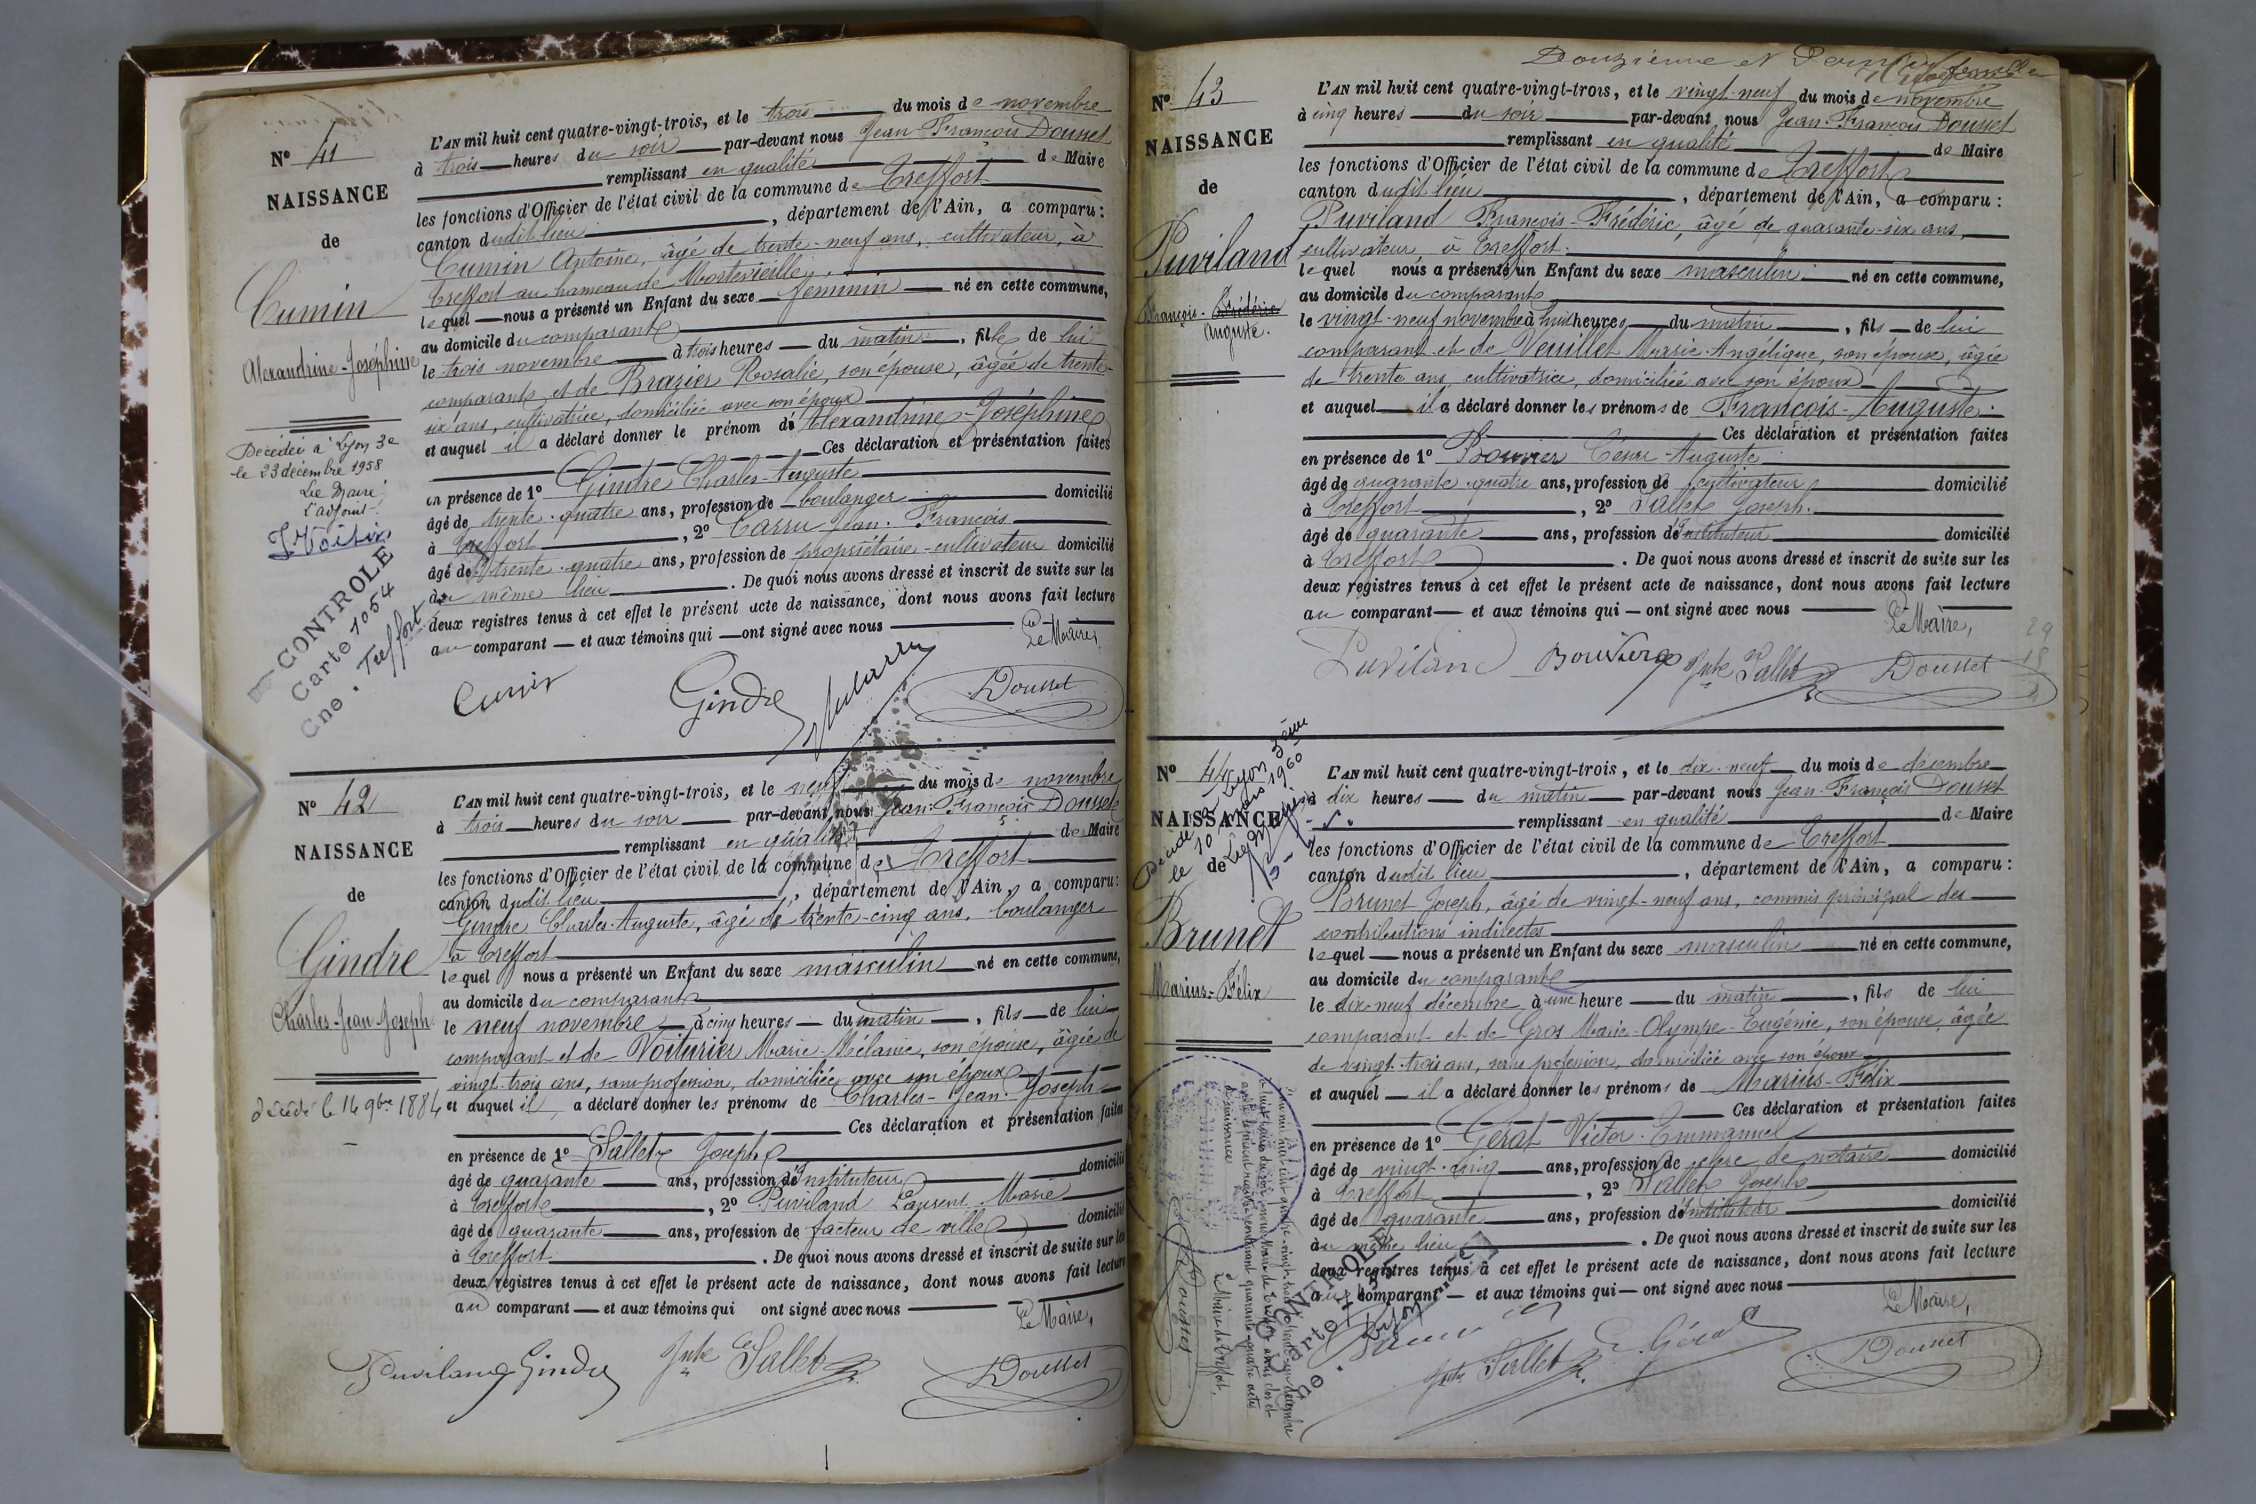 N° 41
NAISSANCE
de
Cumin
Alexandrine-Joséphine
Décédée à Lyon 3e
le 23 décembre 1958
Le Maire
L'adjoint
CONTROLE
Carte 1054
Cne. Treffort
L'AN mil huit cent quatre-vingt-trois, et le trois du mois de novembre
à trois heures du soir par-devant nous Jean François Dousset
remplissant en qualité de Maire
les fonctions d'Officier de l'état civil de la commune de Treffort
canton dudit lieu, département de l'Ain, a comparu :
Cumin Antoine, âgé de trente-neuf ans, cultivateur, à
Treffort au hameau de Montevieille,
lequel nous a présenté un Enfant du sexe féminin né en cette commune,
au domicile du comparant
le trois novembre à trois heures du matin, fille de lui
comparant et de Brazier Rosalie, son épouse, âgée de trente-
six ans, cultivatrice, domiciliée avec son époux
et auquel il a déclaré donner le prénom de Alexandrine-Joséphine
Ces déclaration et présentation faites
en présence de 1° Gindre Charles-Auguste
âgé de trente-quatre ans, profession de boulanger domicilié
à Treffort, 2° Carru Jean-François
âgé de trente-quatre ans, profession de propriétaire-cultivateur domicilié
au même lieu. De quoi nous avons dressé et inscrit de suite sur les
deux registres tenus à cet effet le présent acte de naissance, dont nous avons fait lecture
au comparant et aux témoins qui ont signé avec nous
Le Maire,
Cumin Gindre Dousset
N° 42
NAISSANCE
de
Gindre
Charles-Jean-Joseph
décédé le 14 9bre 1884
L'AN mil huit cent quatre-vingt-trois, et le neuf du mois de novembre
à trois heures du soir par-devant nous Jean-François Dousset
remplissant en qualité de Maire
les fonctions d'Officier de l'état civil de la commune de Treffort
canton dudit lieu, département de l'Ain, a comparu :
Gindre Charles-Auguste, âgé de trente-cinq ans, boulanger
à Treffort
lequel nous a présenté un Enfant du sexe masculin né en cette commune,
au domicile du comparant
le neuf novembre à cinq heures du matin, fils de lui
comparant et de Voiturier Marie-Mélanie, son épouse, âgée de
vingt-trois ans, sans profession, domiciliée avec son époux
et auquel il a déclaré donner les prénoms de Charles-Jean-Joseph
Ces déclaration et présentation faites
en présence de 1° Sallet Joseph
âgé de quarante ans, profession d'Instituteur domicilié
à Treffort, 2° Puviland Laurent-Marie
âgé de quarante ans, profession de facteur de ville domicilié
à Treffort. De quoi nous avons dressé et inscrit de suite sur les
deux registres tenus à cet effet le présent acte de naissance, dont nous avons fait lecture
au comparant et aux témoins qui ont signé avec nous
Le Maire,
Puviland Gindre Sallet Dousset
Douzième et Dernier
N° 43
NAISSANCE
de
Puviland
François-Frédéric
Auguste.
L'AN mil huit cent quatre-vingt-trois, et le vingt-neuf du mois de novembre
à cinq heures du soir par-devant nous Jean-François Dousset
remplissant en qualité de Maire
les fonctions d'Officier de l'état civil de la commune de Treffort
canton dudit lieu, département de l'Ain, a comparu :
Puviland François-Frédéric, âgé de quarante-six ans,
cultivateur à Treffort.
lequel nous a présenté un Enfant du sexe masculin né en cette commune,
au domicile du comparant
le vingt-neuf novembre à huit heures du matin, fils de lui
comparant et de Veuillet Marie-Angélique, son épouse, âgée
de trente ans, cultivatrice, domiciliée avec son époux
et auquel il a déclaré donner les prénoms de François-Auguste.
Ces déclaration et présentation faites
en présence de 1° Bouvier César-Auguste
âgé de quarante-quatre ans, profession de cultivateur domicilié
à Treffort, 2° Sallet Joseph.
âgé de quarante ans, profession d'Instituteur domicilié
à Treffort. De quoi nous avons dressé et inscrit de suite sur les
deux registres tenus à cet effet le présent acte de naissance, dont nous avons fait lecture
au comparant et aux témoins qui ont signé avec nous
Le Maire,
Puviland Bouvier Sallet Dousset
N° 44
NAISSANCE
de
Brunet
Marius-Félix
Décédé à Lyon 3ème
Le Maire
L'AN mil huit cent quatre-vingt-trois, et le dix-neuf du mois de décembre
à dix heures du matin par-devant nous Jean-François Dousset
remplissant en qualité de Maire
les fonctions d'Officier de l'état civil de la commune de Treffort
canton dudit lieu, département de l'Ain, a comparu :
Brunet Joseph, âgé de vingt-neuf ans, commis principal des
contributions indirectes
lequel nous a présenté un Enfant du sexe masculin né en cette commune,
au domicile du comparant
le dix-neuf décembre à une heure du matin, fils de lui
comparant et de Gros Marie-Olympe-Eugénie, son épouse, âgée
de vingt-trois ans, sans profession, domiciliée avec son époux
et auquel il a déclaré donner les prénoms de Marius-Félix
Ces déclaration et présentation faites
en présence de 1° Gérat Victor-Emmanuel
âgé de vingt-cinq ans, profession de clerc de notaire domicilié
à Treffort, 2° Sallet Joseph
âgé de quarante ans, profession d'Instituteur domicilié
au même lieu. De quoi nous avons dressé et inscrit de suite sur les
deux registres tenus à cet effet le présent acte de naissance, dont nous avons fait lecture
au comparant et aux témoins qui ont signé avec nous
Le Maire,
Sallet Gérat Dousset